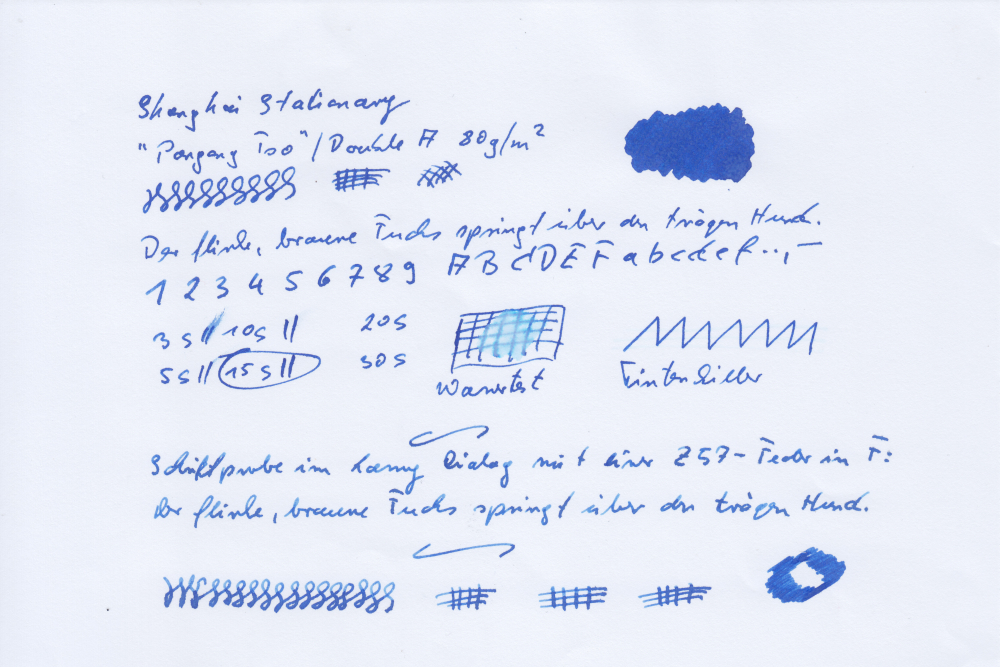 Shanghai Stationary
"Pangang Iso" / Double A 80g/m²
Der flinke, braune Fuchs springt über den trägen Hund.
1 2 3 4 5 6 7 8 9 A B C D E F a b c d e f . . , —
3s // 10s // 20s
5s // 15s // 30s
Wassertest Tintenkiller
Schriftprobe im Lamy Dialog mit einer Z57-Feder in F:
Der flinke, braune Fuchs springt über den trägen Hund.